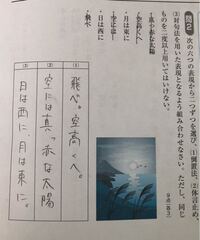 問2 次の六つの表現から二つずつを選び、(1)倒置法、(2)体言止め、
(3)対句法を用いた表現となるよう組み合わせなさい。ただし、同じ
ものを二度以上用いてはいけない。
・真っ赤な太陽
・空高く
・月は東に
・空には
・日は西に
・飛べ
(1) 飛べ。空高くへ。
(2) 空には真っ赤な太陽
(3) 日は西に、月は東に。